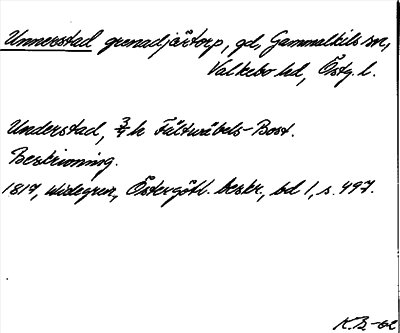 Unnerstad grenadjärtorp, gd, Gammalkils sn,
Valkebo hd, Östg. l.
Understad, 3/4 h Fältwäbels-Bost.
Beskrivning.
1817, Widegren, Östergötl. beskr, bd 1, s. 497.
K.B-62